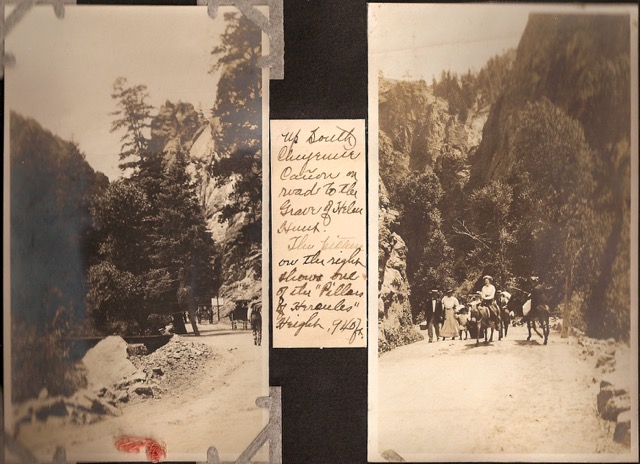 Up South
Cheyenne
Cañon on
road to the
Grave of Helen
Hunt.
The picture
on the right
shows one
of the "Pillars
of Hercules"
Height, 940 ft.